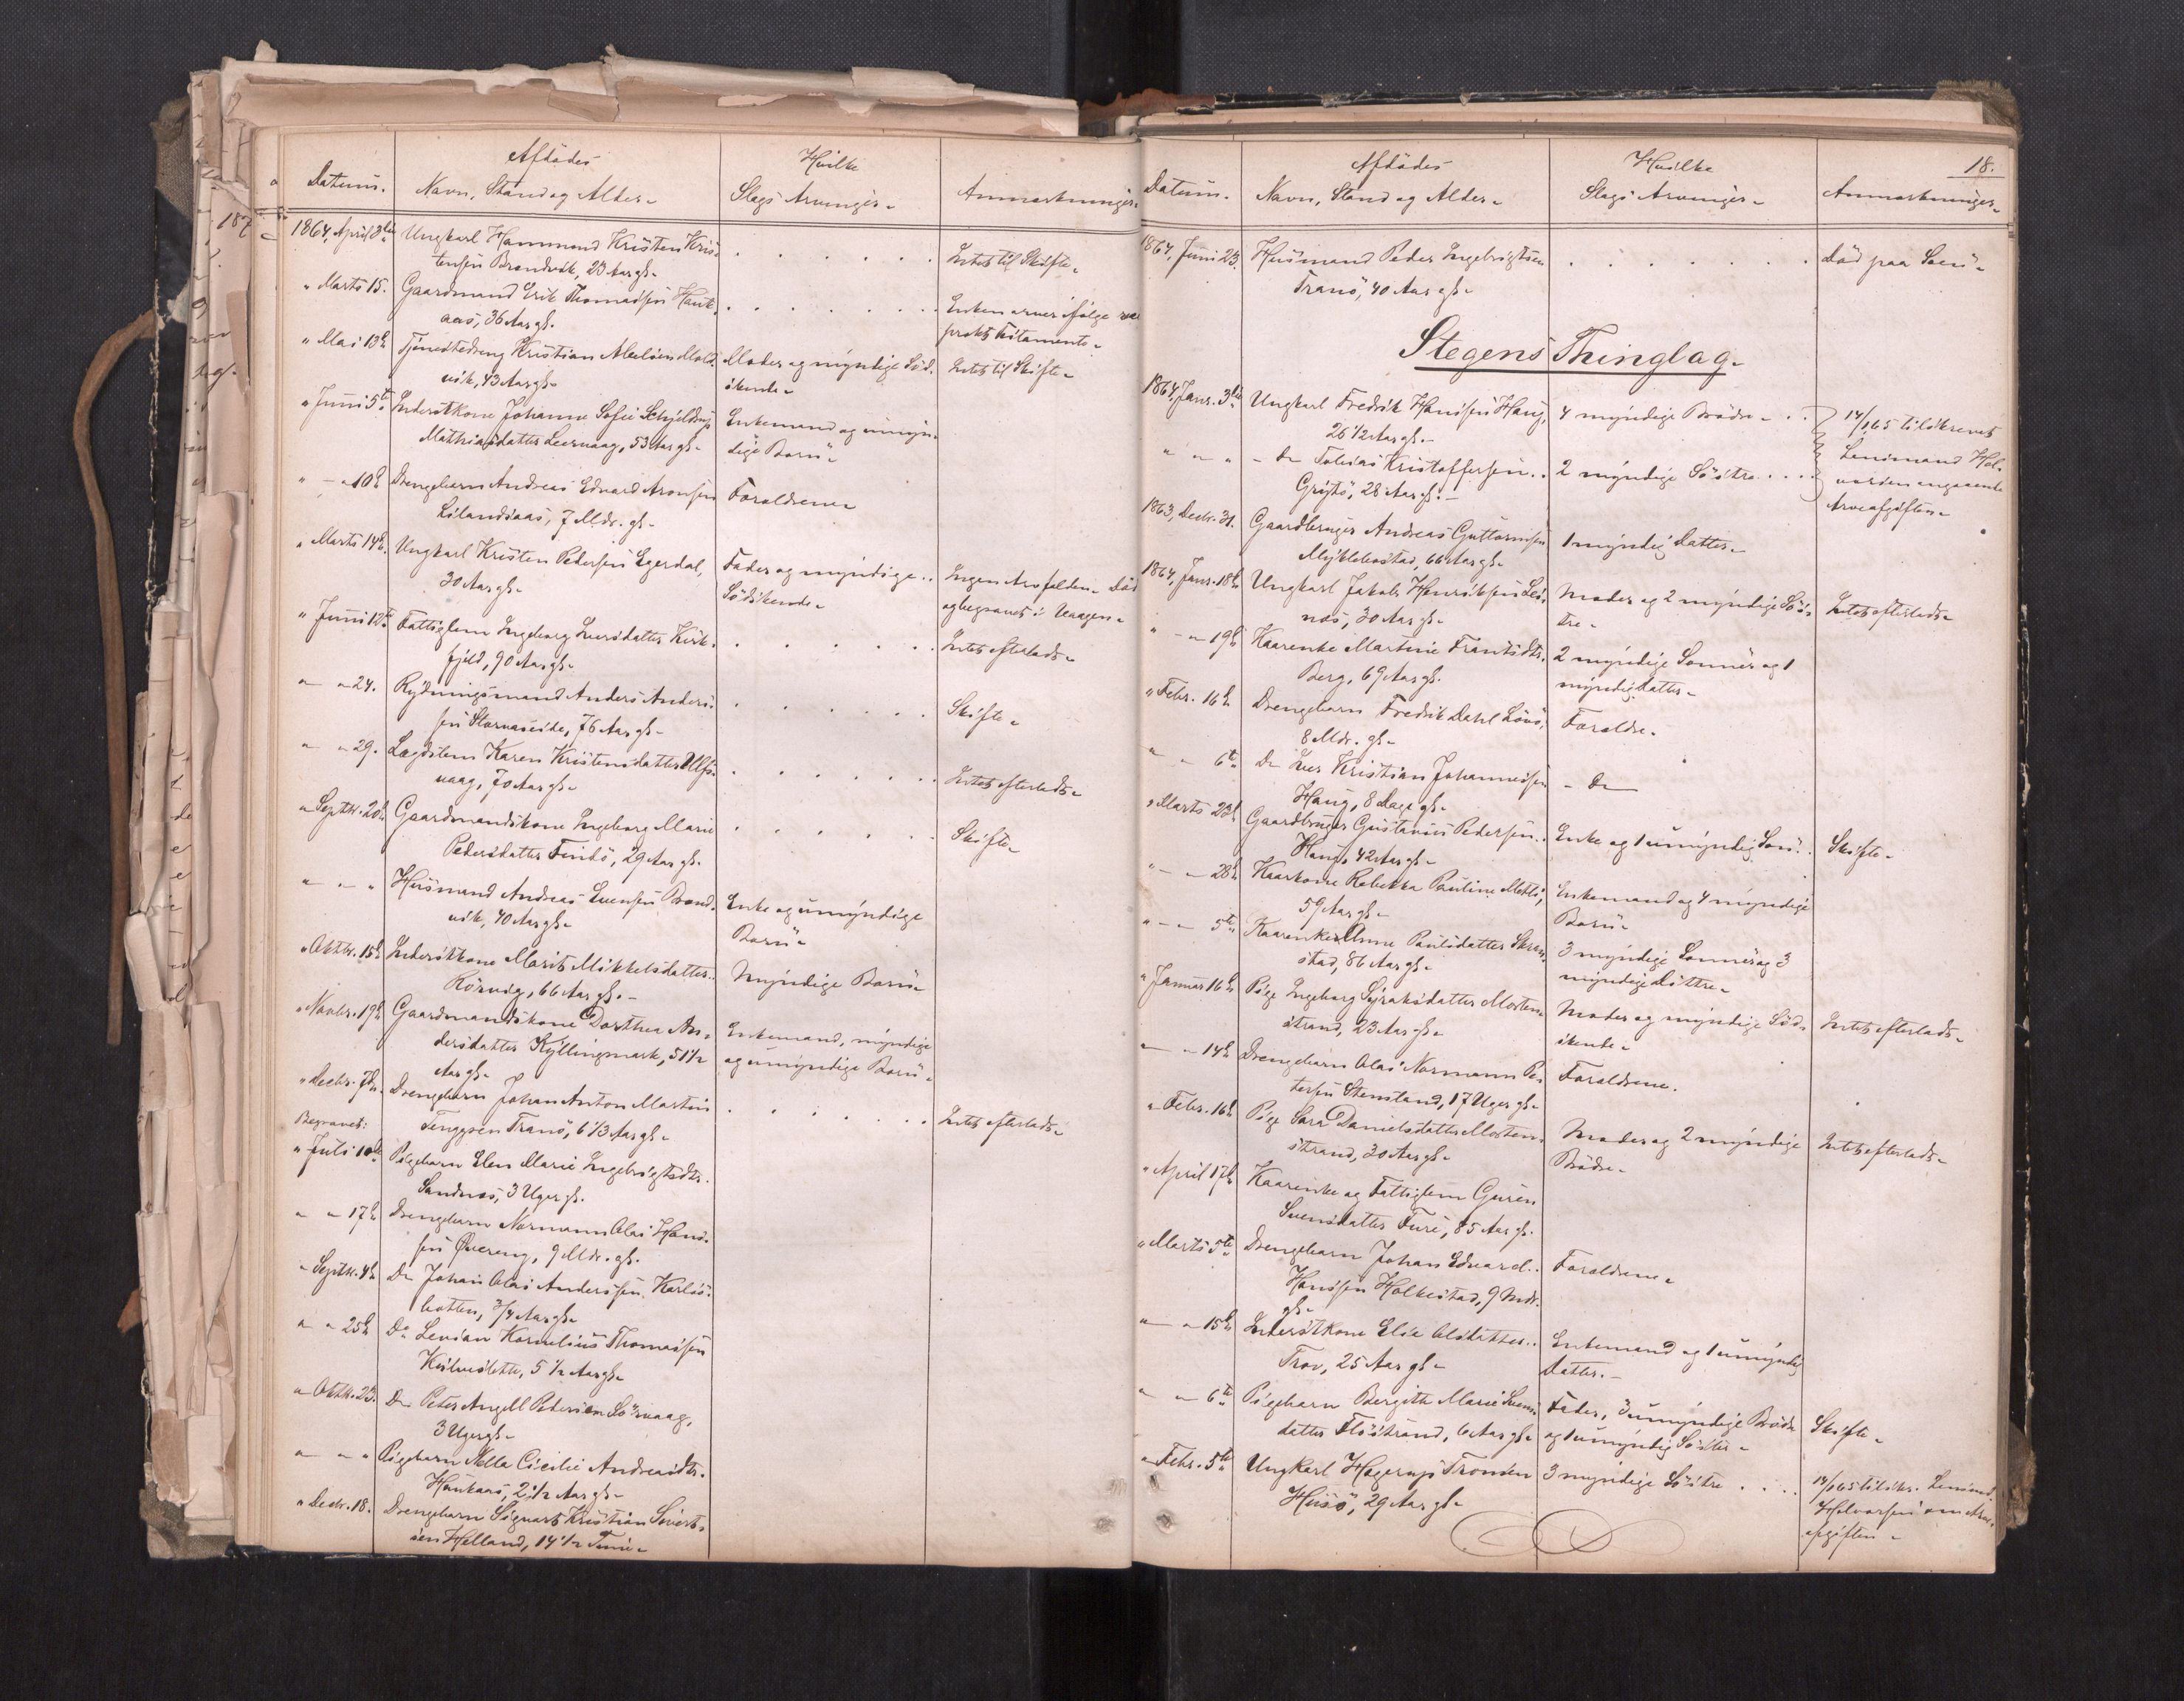 Datum.
Afdødes
Navn, Stand og Alder.
Hvilke
Slags Arvinger.
Anmærkninger.
1864, April 3die
Ungkarl Hammond Kristen Kris-
tensen Brandvik, 23 Aar gl.
Intet til Skifte.
" Marts 15.
Gaardmand Erik Thomassen Hauk-
aas, 36 Aar gl.
Enken arver ifølge
Testamente.
" Mai 13de
Tjenestedreng Kristian Nielsen
vik, 43 Aar gl.
Moder og myndige Sød-
skende.
Intet til Skifte.
" Juni 5te
Inderstkone Johanne Sofie Schjeldrup
Mathiasdatter Leervaag, 53 Aar gl.
Enkemand og umyn-
dige Børn.
" - " 10de
Drengebarn Andreas Edvard Aronsen
Lilandsaas, 7 Mdr. gl.
Forældrene.
" Marts 14de
Ungkarl Kristen Pedersen Egerdal,
30 Aar gl.
Fader og myndige
Södskende.
Ingen Arv falden. Död
og begravet i Vaagen.
" Juni 12te
Fattiglem Ingeborg Larsdatter Kirk-
fjeld, 90 Aar gl.
Intet efterladt.
" " 24.
Rydningsmand Anders Anders-
sen Storvaseide, 76 Aar gl.
Skifte.
" " 29.
Lægdslem Karen Kristensdatter Ulfs-
vaag, 70 Aar gl.
Intet efterladt.
" Septbr. 20de
Gaardmandskone Ingeborg Marie
Pedersdatter Finnö, 29 Aar gl.
Skifte.
" " "
Husmand Andreas Evensen Brand-
vik, 40 Aar gl.
Enke og umyndige
Börn.
" Oktbr. 15de
Inderstkone Marit Mikkelsdatter
Rörvig, 66 Aar gl.
Myndige Börn.
" Novbr. 19de
Gaardmandskone Dorthea An-
dersdatter Kyllingmark, 51 1/2
Aar gl.
Enkemand, myndige
og umyndige Börn.
" Decbr. 7de
Drengebarn Johan Anton Martin
Tengesen Tranö, 6 1/3 Aar gl.
Intet efterladt.
Begravet:
" Juli 10de
Pigebarn Elen Marie Ingebrigtsdtr.
Sandnæs, 3 Uger gl.
" " 17de
Drengebarn Normann Olai Hans-
sen Øvereng, 9 Mdr. gl.
" Septbr. 4de
Do Johan Olai Anderssen Karlös-
botten, 3/4 Aar gl.
" " 25de
Do Levian Kornelius Thomassen
5 1/2 Aar gl.
" Oktbr. 23.
Do Peter Angell Petersen Sörvaag,
3 Uger gl.
" " "
Pigebarn Nella Cicilie Andreasdtr.
Haukaas, 2 1/2 Aar gl.
" Decbr. 18.
Drengebarn Sigvart Kristian Sivert-
sen Helland, 14 1/2 Time.
18.
Datum.
Afdødes
Navn, Stand og Alder.
Hvilke
Slags Arvinger.
Anmærkninger.
1864, Juni 23.
Husmand Peder Ingebrigtsen
Tranö, 40 Aar gl.
Död paa Søen.
Stegens Thinglag.
1864, Janr. 3die
Ungkarl Fredrik Hansen Haug,
26 1/2 Aar gl.
4 myndige Brödre.
14/1 65 tilskrevet
Lensmand Hal-
vorsen angaaende
Arveafgiften.
" " "
- Do Tobias Kristoffersen
Gröjtö, 28 Aar gl.
2 myndige Söstre
1863, Decbr. 31.
Gaardbruger Andreas Guttormsen
Myklebostad, 66 Aar gl.
1 myndig Datter.
1864, Janr. 18de
Ungkarl Jakob Henriksen Lei-
nes, 30 Aar gl.
Moder og 2 myndige Sös-
tre.
Intet efterladt.
" - " 19de
Kaarenke Martine Frantsdtr.
Berg, 69 Aar gl.
2 myndige Sønner og 1
myndig Datter.
" Febr. 16de
Drengebarn Fredrik Dahl Lövö,
8 Mdr. gl.
Forældre.
" " 6te
Do Lars Kristian Johannessen
Haug, 8 Dage gl.
- Do
" Marts 23de
Gaardbruger Gustavus Pedersen
Haug, 42 Aar gl.
Enke og 1 umyndig Søn.
Skifte.
" - " 28de
Kaarkone Rebekka Pauline
59 Aar gl.
Enkemand og 4 myndige
Börn.
" - " 5te
Kaarenke Anne Paulsdatter Skran-
stad, 86 Aar gl.
3 myndige Sønner og 3
myndige Döttre.
" Januar 16de
Pige Ingeborg Sjraksdatter Morten-
strand, 23 Aar gl.
Moder og myndige Söd-
skende.
Intet efterladt.
" - " 14de
Drengebarn Olai Normann Pe-
tersen Stensland, 17 Uger gl.
Forældrene.
" Febr. 16de
Pige Sara Danielsdatter Morten-
strand, 30 Aar gl.
Moder og 2 myndige
Brödre.
Intet efterladt.
" April 17de
Kaarenke og Fattiglem Guren
Svensdatter Fure, 85 Aar gl.
" Marts 5te
Drengebarn Johan Edvard
Hanssen Holkestad, 9 Mdr.
gl.
Forældrene.
" " 15de
Inderstkone Else Olsdatter
Trov, 25 Aar gl.
Enkemand og 1 umyndig
Datter.
" " 6te
Pigebarn Bergith Marie Svens-
datter Flöstrand, 6 Aar gl.
Fader, 3 umyndige Brödre
og 1 umyndig Söster.
Skifte.
" Febr. 5te
Ungkarl Hagerup Tronsen
Husö, 29 Aar gl.
3 myndige Söstre
14/1 65 tilskr. Lensmd.
Halvorsen om Arve-
afgiften.